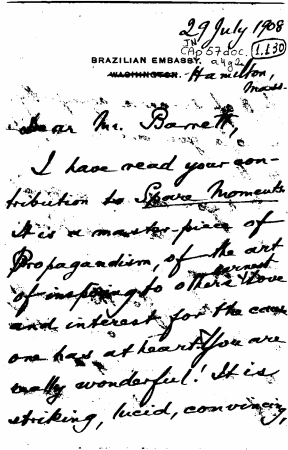 29 July 1908
BRAZILIAN EMBASSY.
WASHINGTON.
Hamilton,
Mass.
Dear Mr. Barrett,
I have read your con-
tribution to Spare Moments.
It is a master-piece of
Propagandism, of the art
of inspiring to others earnest love
and interest for the cause
one has at heart. You are
really wonderful! It is
striking, lucid, convincing,